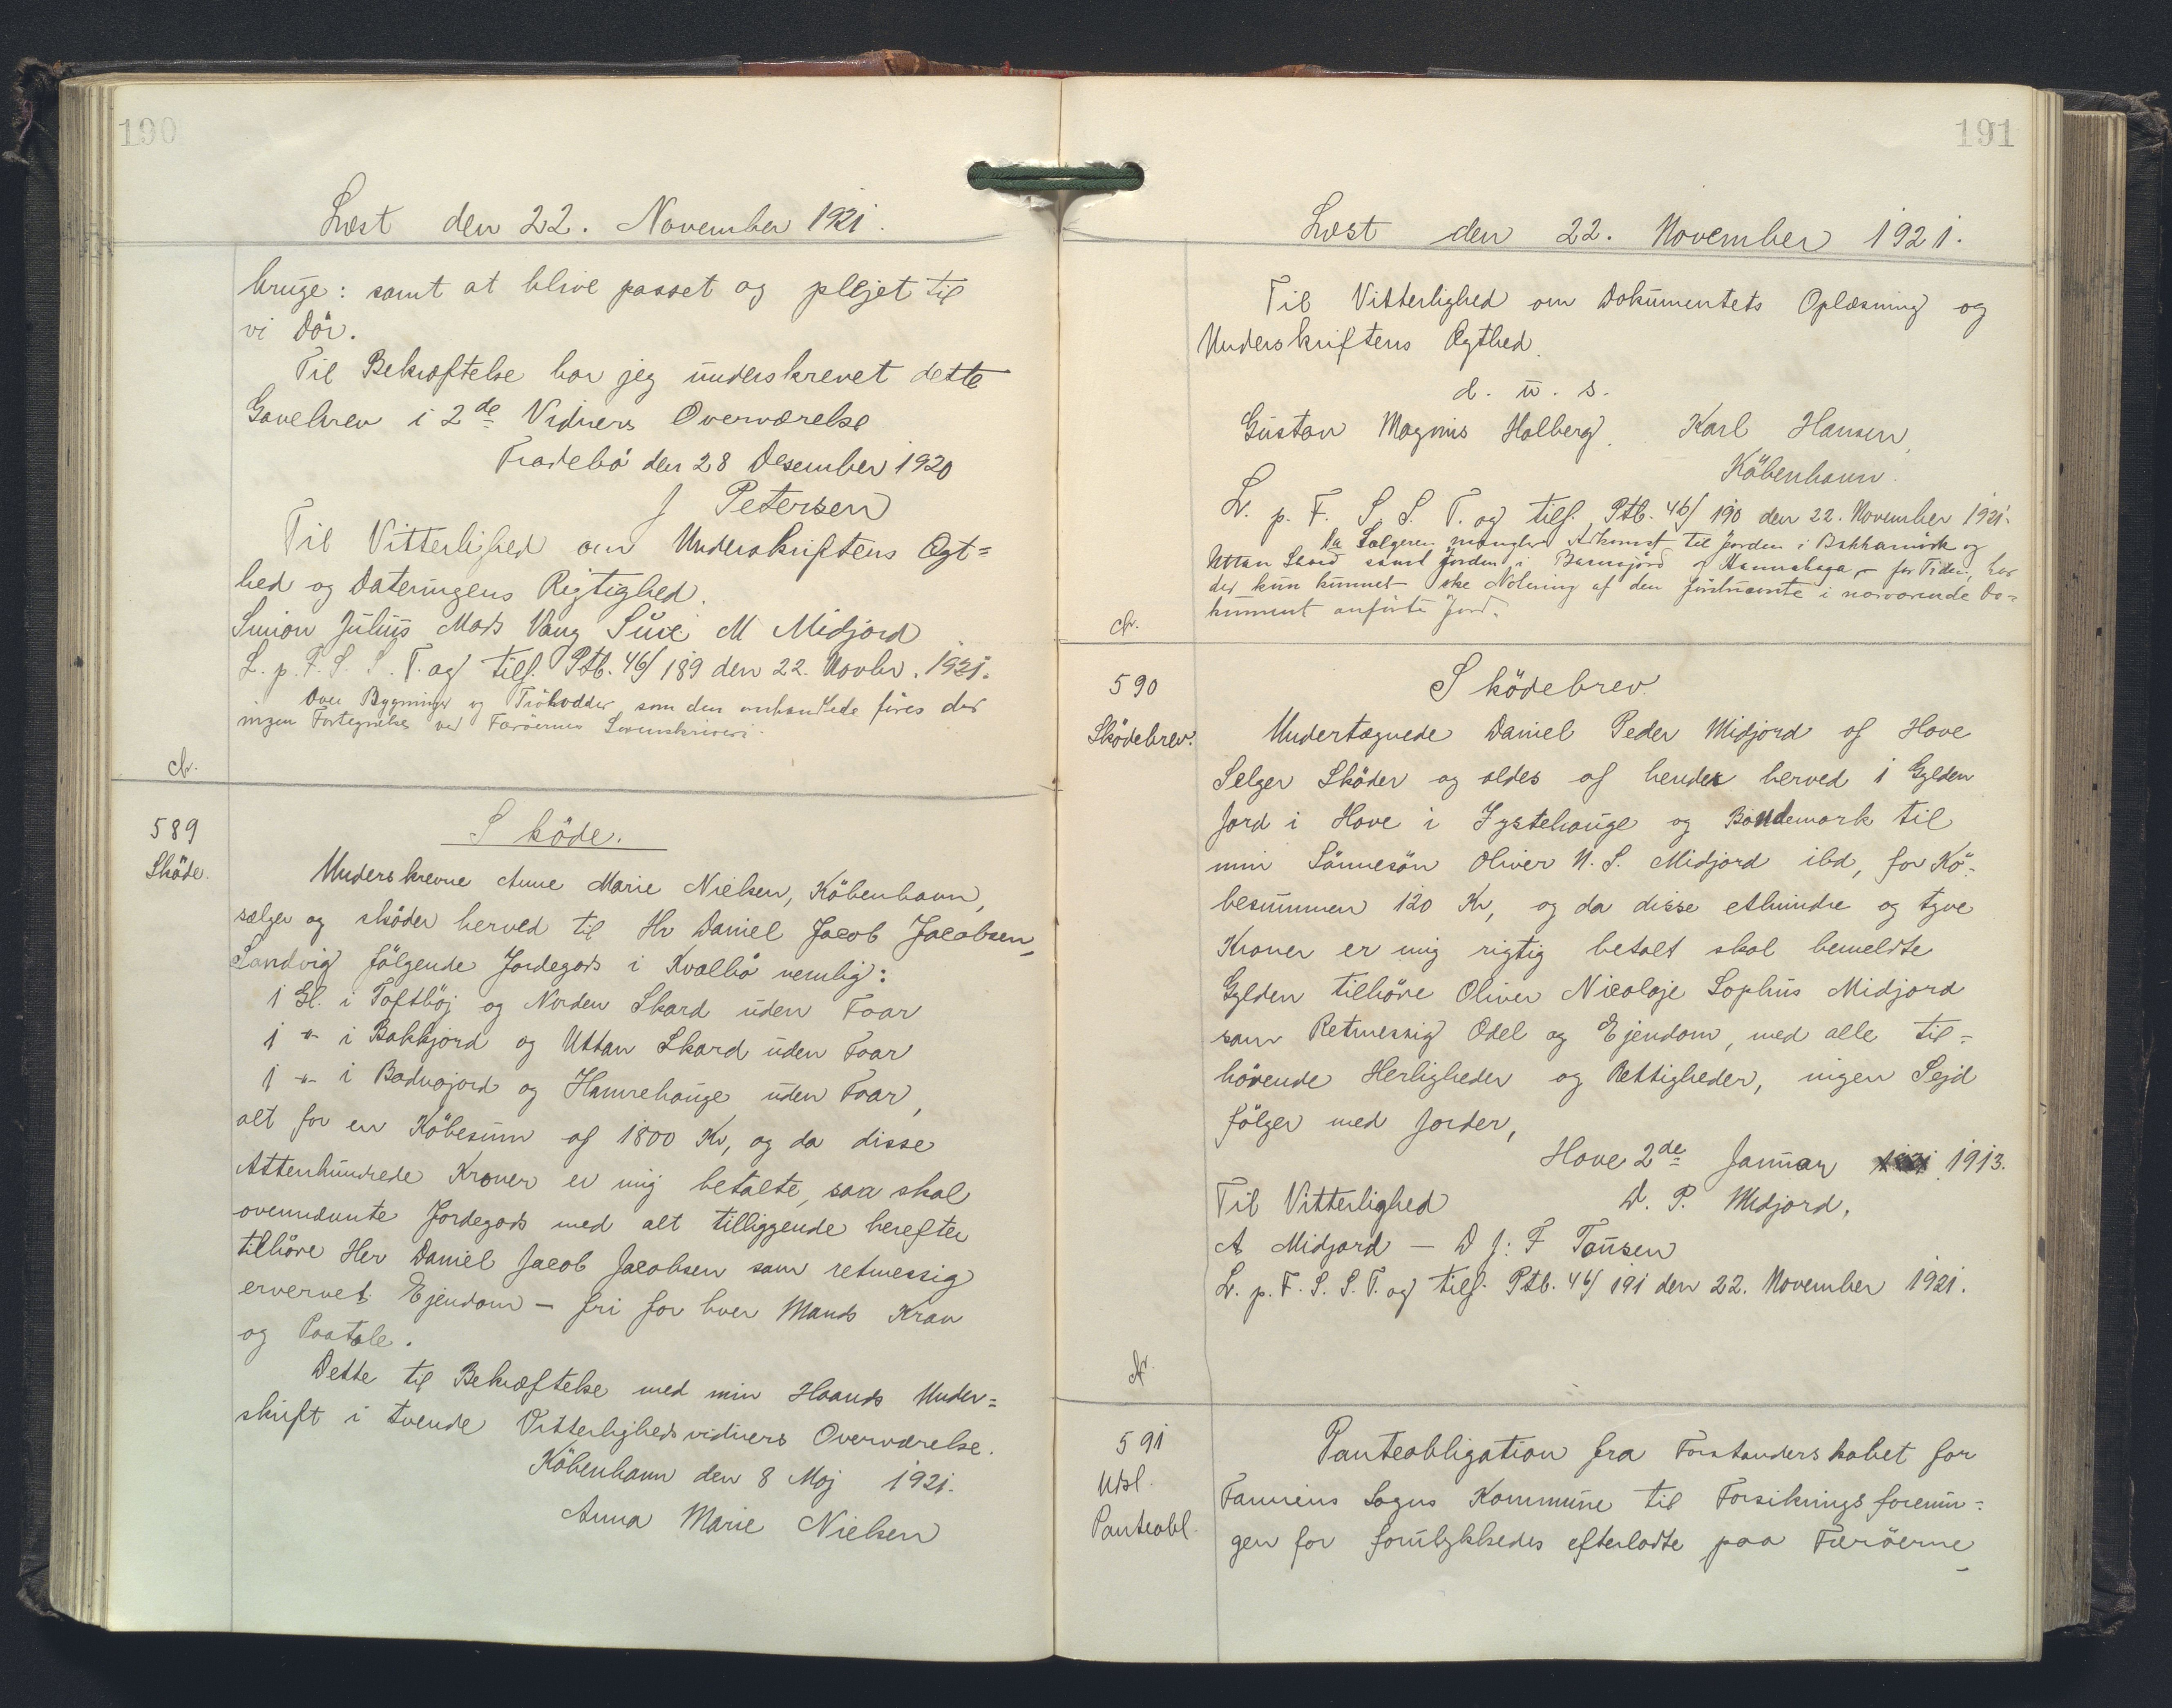 190
Læst den 22. November 1921.
bruge: samt at blive passet og plejet til
vi Dör.
Til Bekræftelse har jeg underskrevet dette
Gavebrev i 2de Vidners Overværelse
Fradebö den 28 Desember 1920
J Petersen
Til Vitterlighed om Underskriftens Ægt=
hed og Dateringens Rigtighed.
Simon Julius Mads Vang Sine M Midjord
L. p. F. S. S. T. og tilf. Ptb. 46/189 den 22. Novbr. 1921.
Over Bygninger og som den omhandlede föres der
ingen Fortegnelse ved Færöernes Sorenskriveri.
589
Sköde.
Sköde.
Underskrevne Anne Marie Nielsen, Köbenhavn,
sælger og sköder herved til Hr Daniel Jacob Jacobsen
Sandvig fölgende Jordegods i Kvalbö nemlig:
1 Gl. i Tofthöj og Norden Skard uden Foar
1 -"- i Bakkjord og Uttan Skard uden Foar
1 -"- i Bodnajord og Hamrehauge uden Foar,
alt for en Köbesum af 1800 Kr, og da disse
Attenhundrede Kroner er mig betalte, saa skal
ovennævnte Jordegods med alt tilliggende herefter
tilhöre Her Daniel Jacob Jacobsen som retmessig
ervervet Ejendom – fri for hver Mands Krav
og Paatale.
Dette til Bekræftelse med min Haands Under=
skrift i tvende Vitterlighedsvidners Overværelse.
Köbenhavn den 8 Maj 1921.
Anna Marie Nielsen
191
Læst den 22. November 1921.
Til Vitterlighed om Dokumentets Oplæsning og
Underskriftens Ægthed.
d. u. s.
Gustav Magnus Holberg. Karl Hansen,
Köbenhavn.
L. p. F. S. S. T. og tilf. Ptb. 46/190 den 22. November 1921.
Da Sælgeren mangler Adkomst til Jorden i og
Uttan Skard samt Jorden i og – for Tiden, har
der kun kunnet ske Notering af den förstnævnte i nærværende Do=
kument anförte Jord.
590
Sködebrev.
Sködebrev.
Undertegnede Daniel Peder Midjord af Hove
Selger Sköder og aldes af hender herved 1 Gylden
Jord i Hove i Iystehauge og Bøndemark til
min Sönnesön Oliver N. S. Midjord ibd, for Kö=
besummen 120 Kr, og da disse ethundre og tyve
Kroner er mig rigtig betalt skal bemeldte
Gylden tilhöre Oliver Nicolaje Sophus Midjord
som Retmessig Odel og Ejendom, med alle til=
hörende Herligheder og Rettigheder, ingen Sejd
fölger med Jorder,
Hove 2de Januar 1913.
Til Vitterlighed D. P. Midjord,
A Midjord – D J: F Tausen
L. p. F. S. S. T. og tilf. Ptb. 46/191 den 22. November 1921.
591
Udsl.
Panteobl.
Panteobligation fra Forstanderskabet for
Famiens Sogns Kommune til Forsikringsforenin=
gen for forulykkedes efterladte paa Færöerne